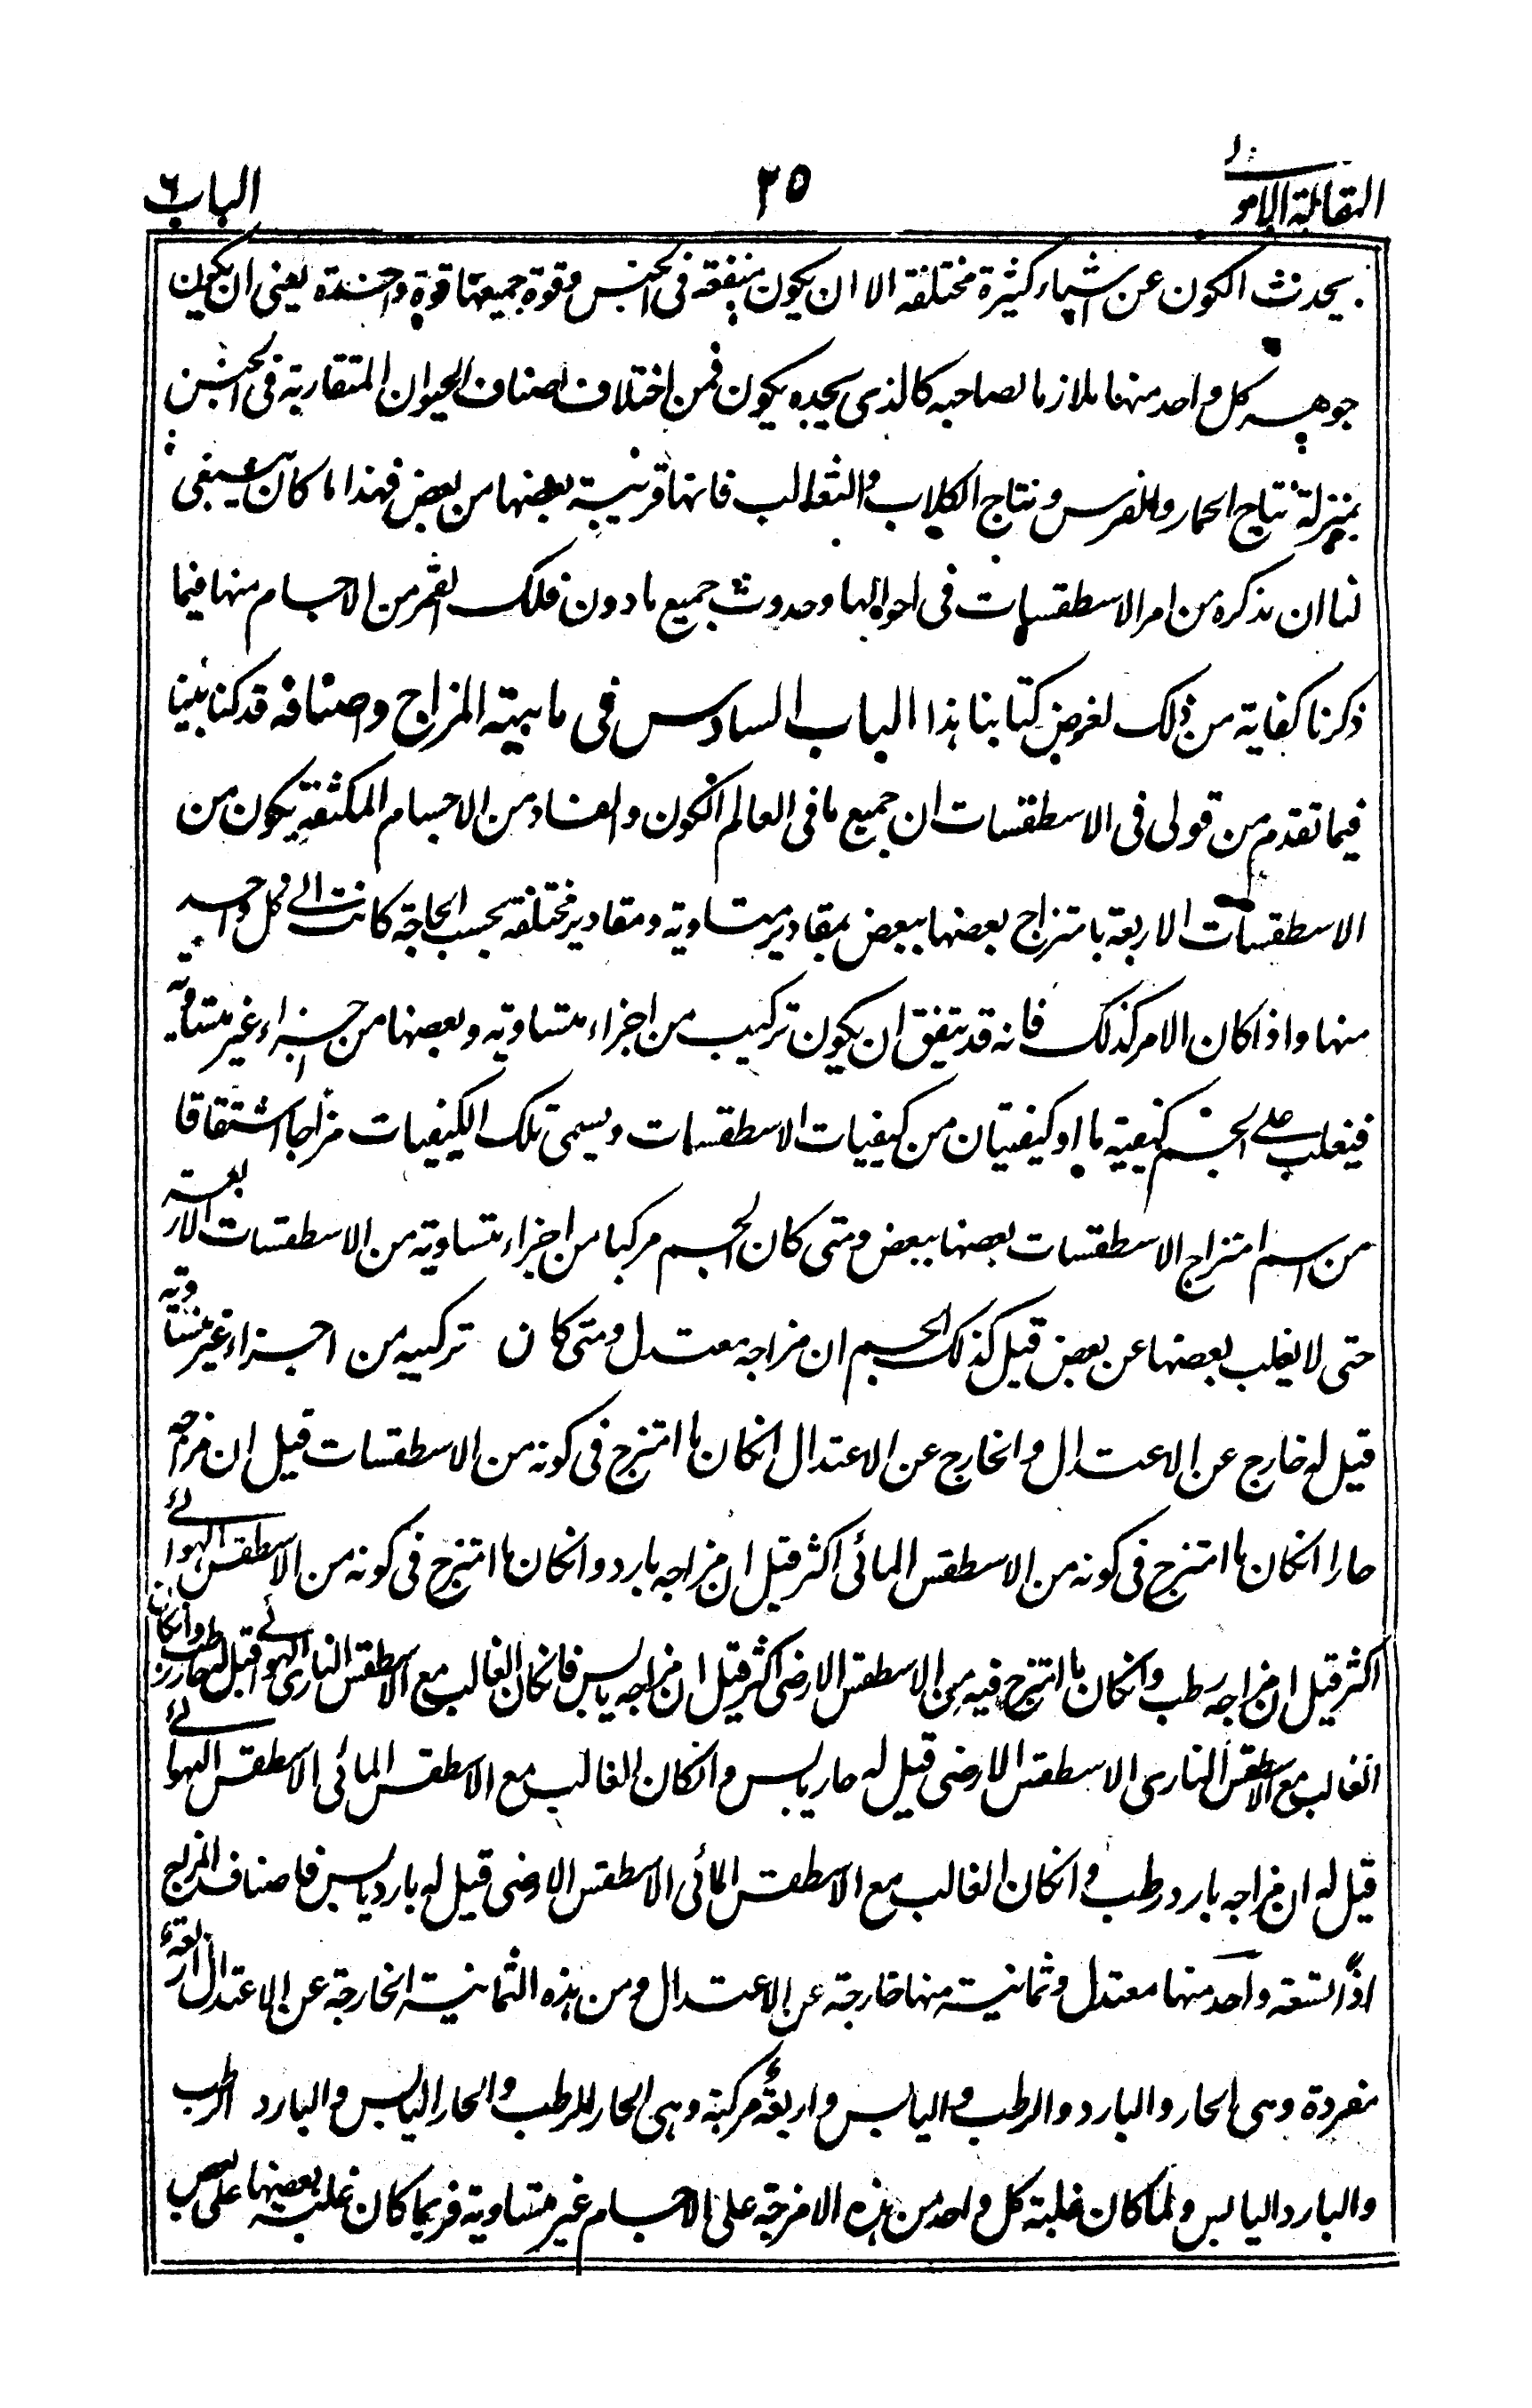 المقالة الاولى
٢٥
الباب ٦
يحدث الكون عن اشياء كثيرة مختلفة الا ان يكون متفقه فى الجنس وقوة جميعها قوة واحدة يعنى ان يكون
جوهر كل واحد منها ملازما لصاحبه كالذى يجده يكون فمن اختلاف اصناف الحيوان المتقاربة فى الجنس
بمنزلة نتاج الحمار والفرس ونتاج الكلاب والثعالب فانها قريبة بعضها من بعض فهذا ما كان ينبغى
لنا ان نذكره من امر الاسطقسات فى احوالها وحدوث جميع ما دون فلك القمر من الاجسام منها فيما
ذكرنا كفاية من ذلك لغرض كتابنا هذا الباب السادس فى ماهية المزاج واصنافه قد كنا بينا
فيما تقدم من قولى فى الاسطقسات ان جميع ما فى العالم الكون والفساد من الاجسام المكثفة يكون من
الاسطقسات الاربعة بامتزاج بعضها ببعض بمقادير متساوية ومقادير مختلفة بحسب الحاجة كانت الى كل واحد
منها واذا كان الامر كذلك فانه قد يتفق ان يكون تركيب من اجزاء متساويه وبعضها من اجزاء غير متساوية
فيغلب على الجسم كيفية ما او كيفيتان من كيفيات الاسطقسات ويسمى تلك الكيفيات مزاجا اشتقاقا
من اسم امتزاج الاسطقسات بعضها ببعض ومتى كان الجسم مركبا من اجزاء متساوية من الاسطقسات الاربعة
حتى لا يغلب بعضها عن بعض قيل كذلك الجسم ان مزاجه معتدل ومتى كان تركيبه من اجزاء غير متساوية
قيل له خارج عن الاعتدال والخارج عن الاعتدال انكان ما امتزج فى كونه من الاسطقسات قيل ان مزاجه
حارا انكان ما امتزج فى كونه من الاسطقس المائى اكثر قيل ان مزاجه بارد وانكان ما امتزج فى كونه من الاسطقس الهوائى
اكثر قيل ان مزاجه رطب وانكان ما امتزج فيه من الاسطقس الارضى اكثر قيل ان مزاجه يابس فانكان الغالب مع الاسطقس النارى الهوائى قيل له حار رطب وانكان
الغالب مع الاسطقس النارى الاسطقس الارضى قيل له حار يابس وانكان الغالب مع الاسطقس المائى الاسطقس الهوائى
قيل له ان مزاجه بارد رطب وانكان الغالب مع الاسطقس المائى الاسطقس الارضى قيل له بارد يابس فاصناف المزاج
اذاً تسعة واحد منها معتدل وثمانية منها خارجة عن الاعتدال ومن هذه الثمانية الخارجة عن الاعتدال اربعة
مفردة وهى الحار والبارد والرطب واليابس واربعة مركبة وهى الحار الرطب والحار اليابس والبارد الرطب
والبارد اليابس ولما كان غلبة كل واحد من هذه الامزجة على الاجسام غير متساوية فربما كان غلبة بعضها على بعض